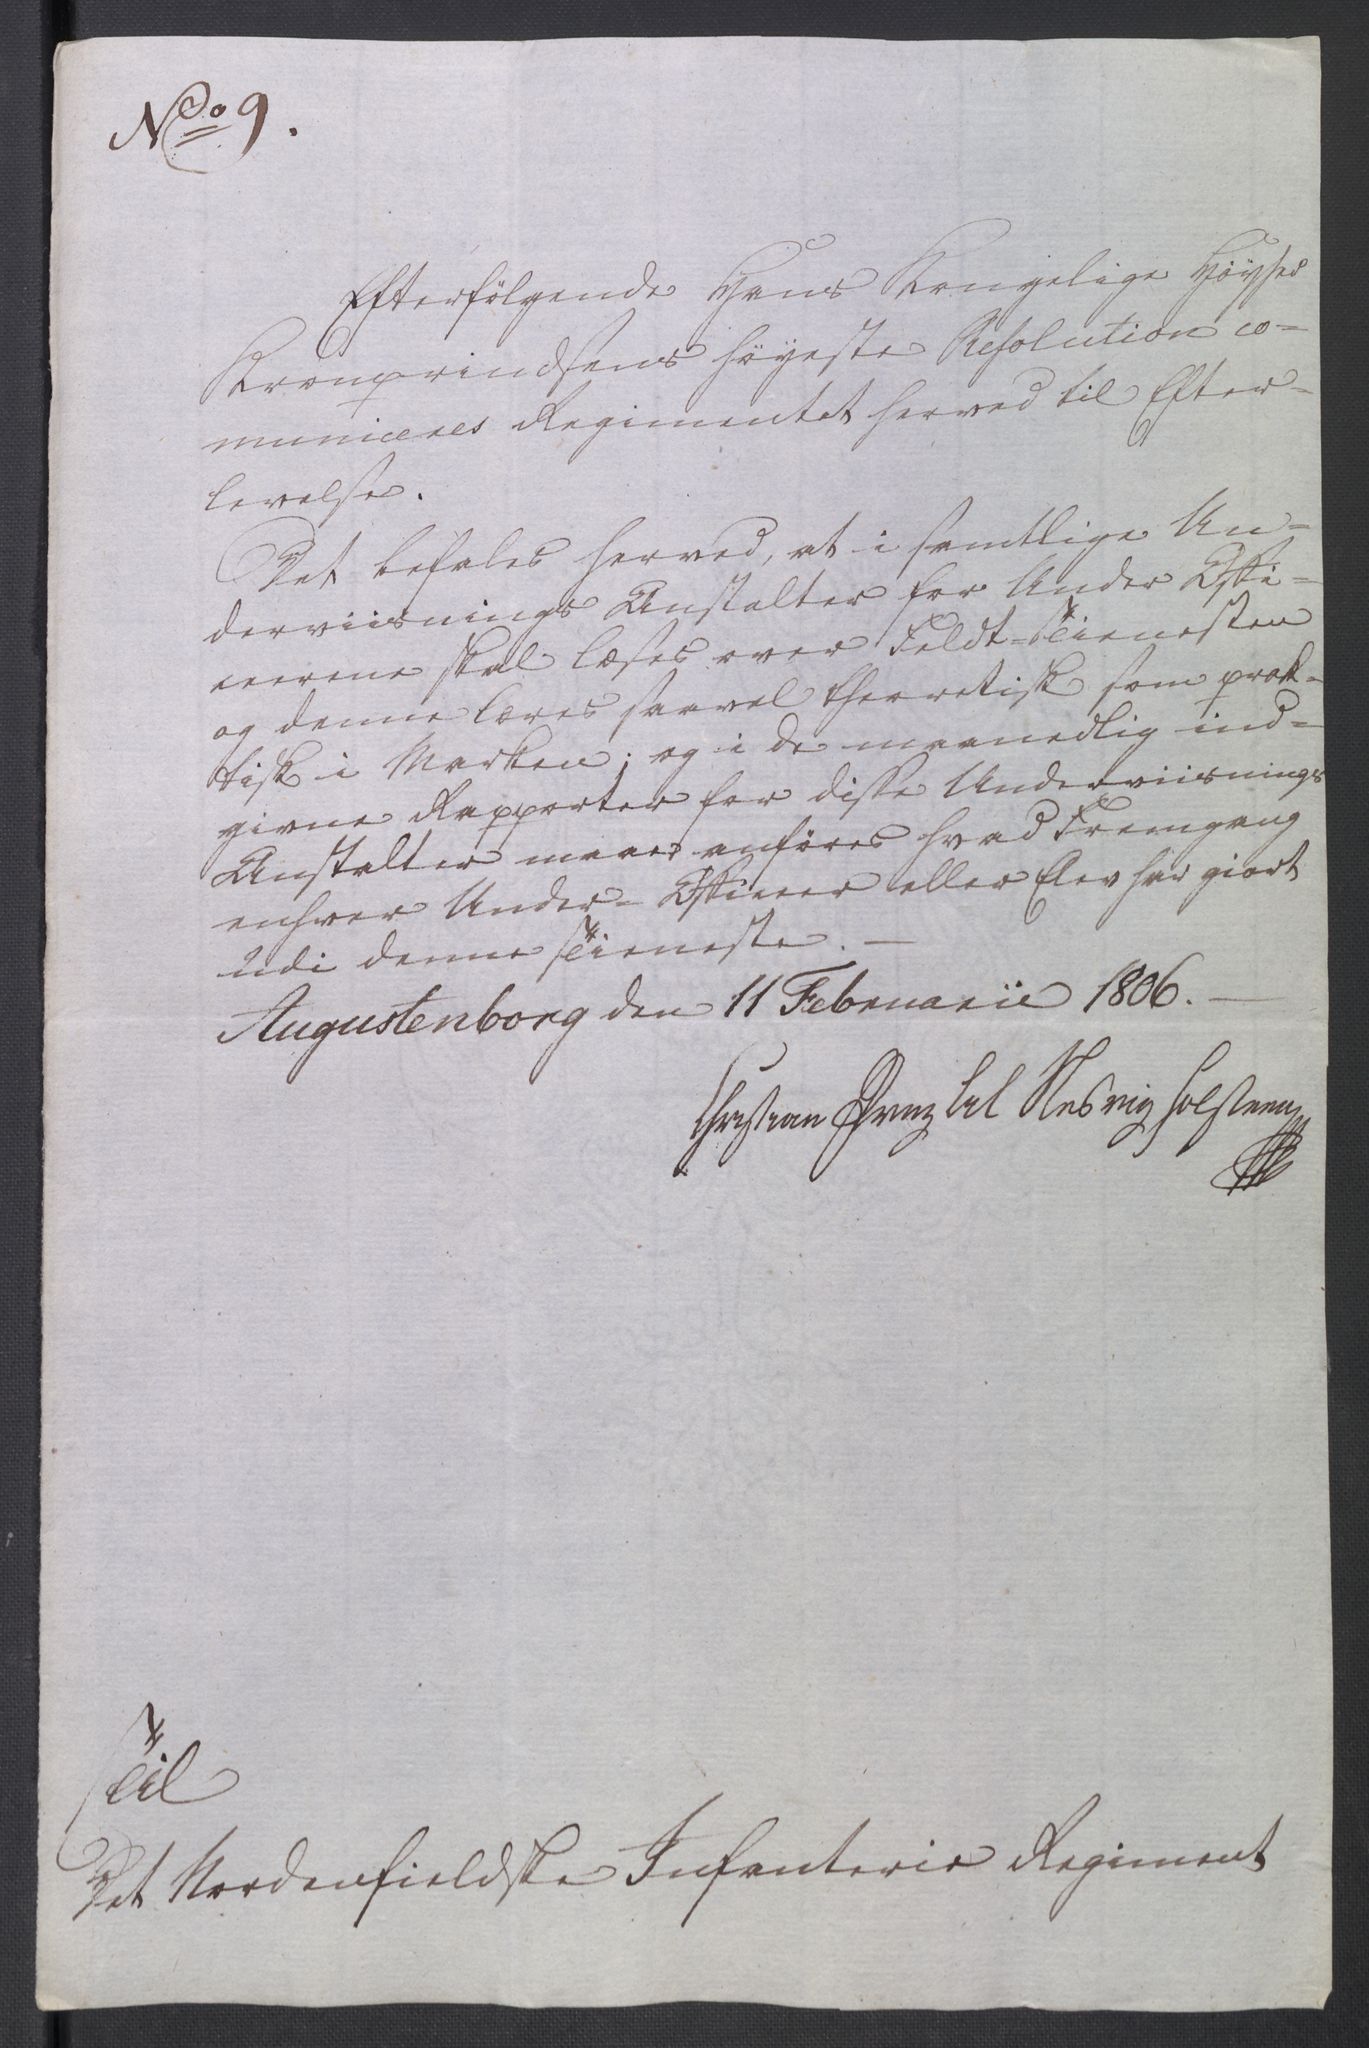 No 9.
Efterfölgende Hans Kongelige Höyhed
Kronprindsens höyeste Resolution co-
municeres Regimentet herved til Efter-
levelse.
Det befales herved, at i samtlige Un-
derviisnings Anstalter for Under Offi-
cererne skal læses over Feldt-Tienesten
og denne læres saavel theoretisk som prak-
tisk i Marken; og i de maanedlig ind-
givne Rapporter for disse Underviisnings
Anstalter maae anföres hvad Fremgang
enhver Under-Officeer eller Elev har giort
udi denne Tieneste. —
Augustenborg den 11 Februarii 1806. —
Christian Prinz til Slesvig Holsteen
Til
Det Nordenfieldske Infanterie Regiment